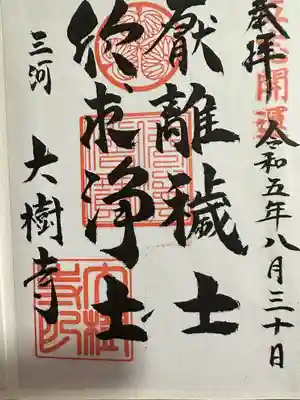 奉拝 令和五年八月三十日
開運
厭離穢土
欣求浄土
三河 大樹寺